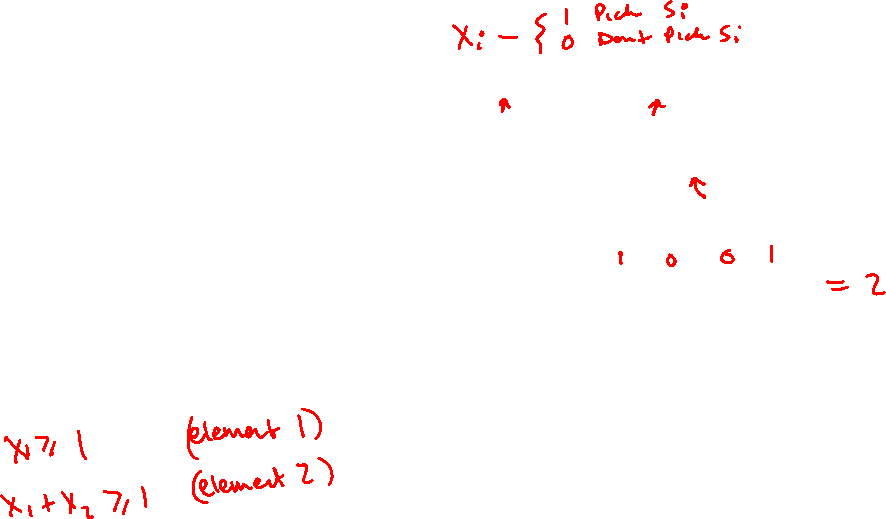 Xi - { 1 Pick Si
0 Dont Pick Si
1 0 0 1
= 2
X1 ≥ 1 (element 1)
X1 + X2 ≥ 1 (element 2)